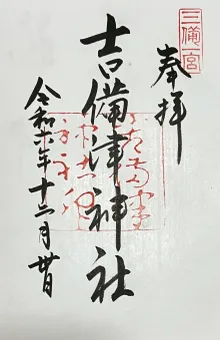 三備一宮
奉拝
吉備津神社
令和六年十二月廿日